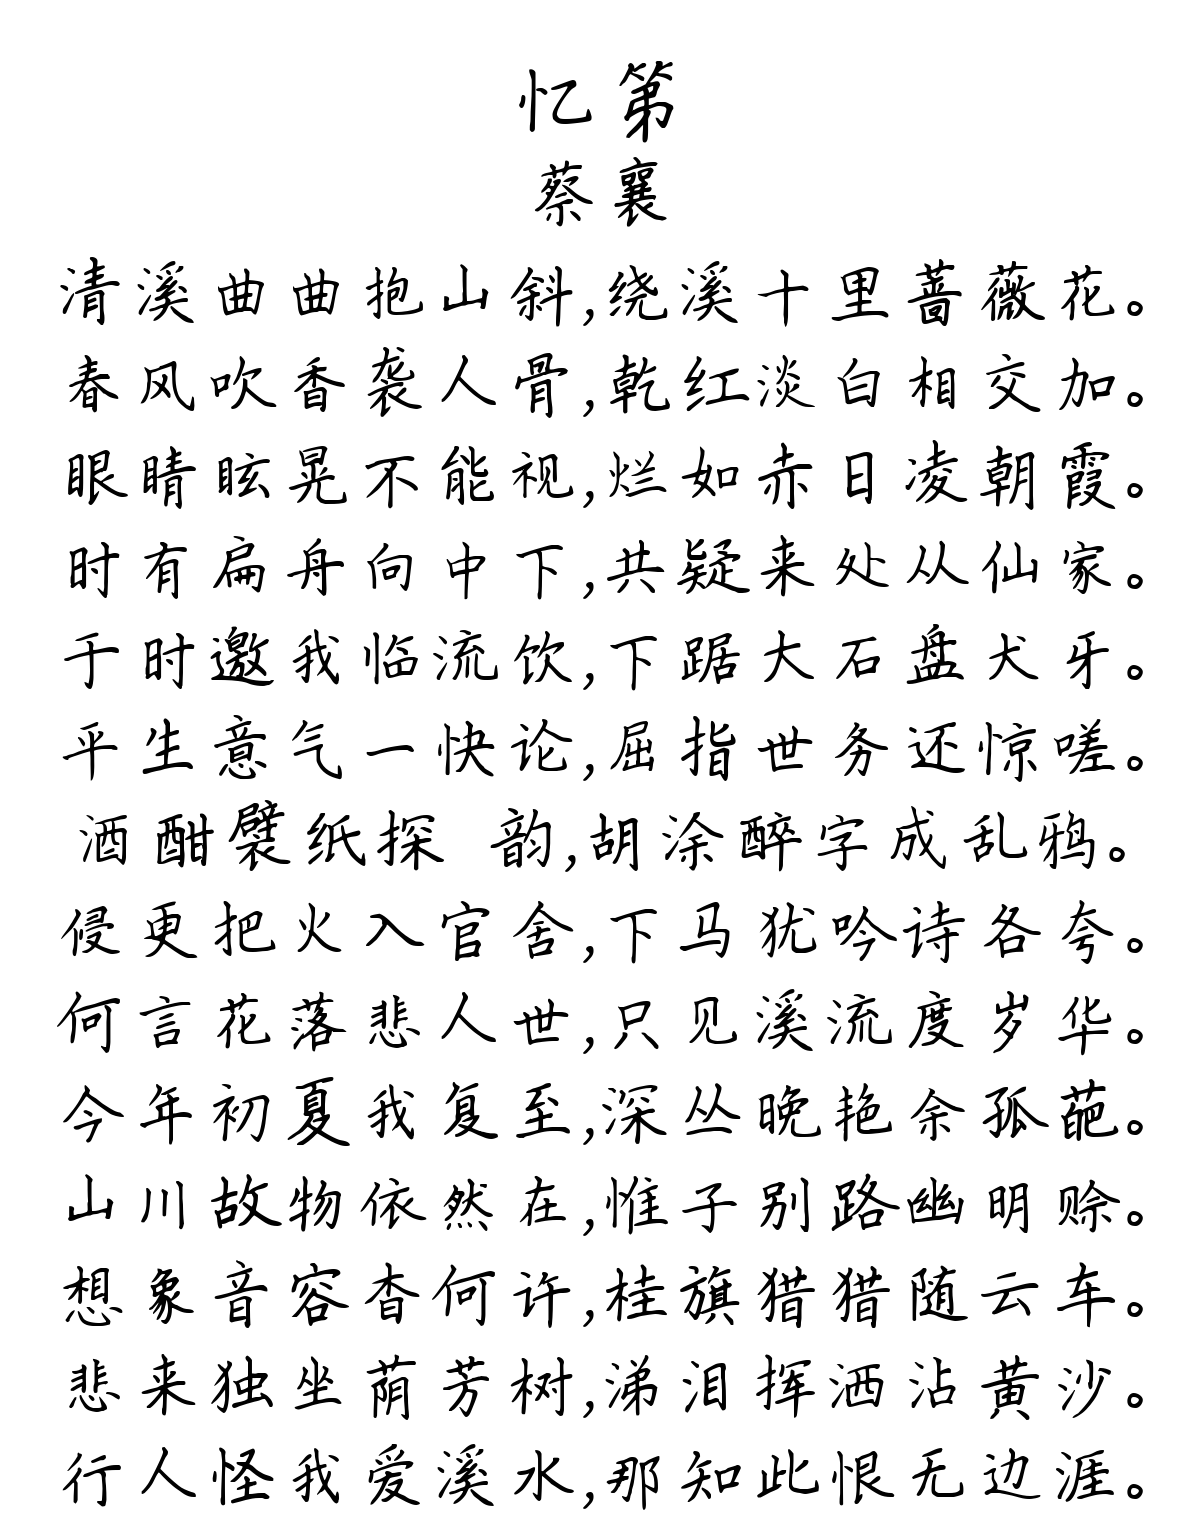 忆第
蔡襄
清溪曲曲抱山斜,绕溪十里蔷薇花。
春风吹香袭人骨,乾红淡白相交加。
眼睛眩晃不能视,烂如赤日凌朝霞。
时有扁舟向中下,共疑来处从仙家。
于时邀我临流饮,下踞大石盘犬牙。
平生意气一快论,屈指世务还惊嗟。
酒酣襞纸探 韵,胡涂醉字成乱鸦。
侵更把火入官舍,下马犹吟诗各夸。
何言花落悲人世,只见溪流度岁华。
今年初夏我复至,深丛晚艳余孤葩。
山川故物依然在,惟子别路幽明赊。
想象音容杳何许,桂旗猎猎随云车。
悲来独坐荫芳树,涕泪挥洒沾黄沙。
行人怪我爱溪水,那知此恨无边涯。